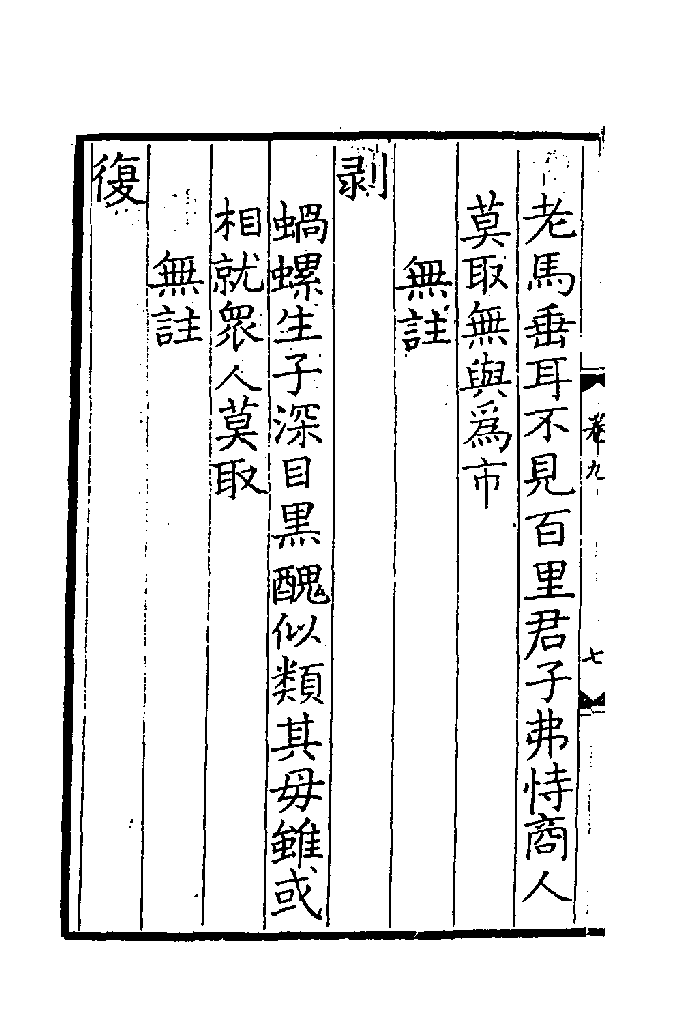 卷九
七
老馬垂耳不見百里君子弗恃商人
莫取無與爲市
無註
剥
蝸螺生子深目黒醜似類其母雖或
相就衆人莫取
無註
復